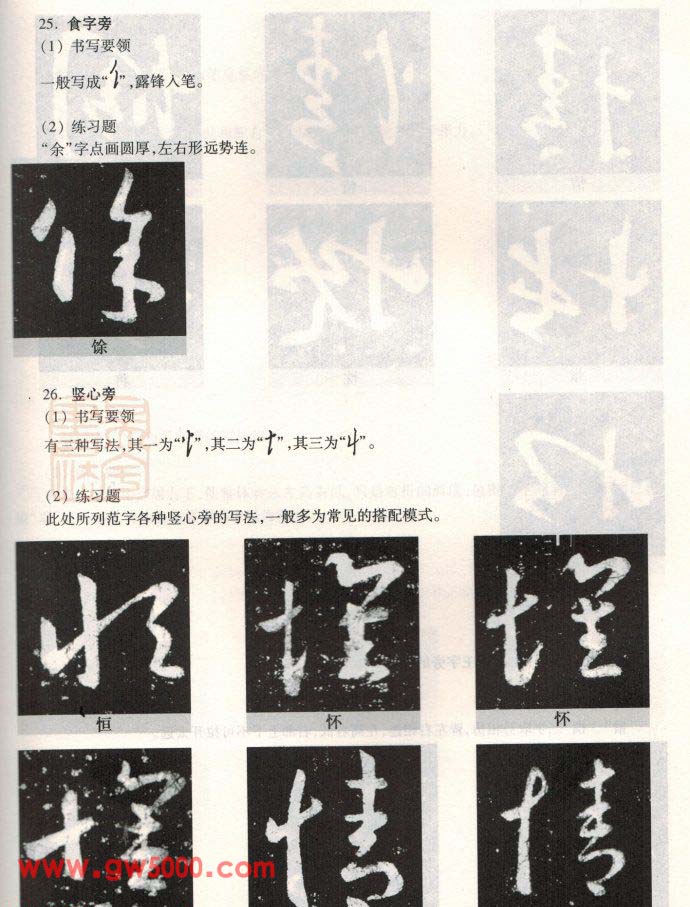 25. 食字旁
(1) 书写要领
一般写成“亻”,露锋入笔。
(2) 练习题
“余”字点画圆厚,左右形远势连。
馀
26. 竖心旁
(1) 书写要领
有三种写法,其一为“”,其二为“”,其三为“”。
(2) 练习题
此处所列范字各种竖心旁的写法,一般多为常见的搭配模式。
恒 怀 怀
www.gw5000.com